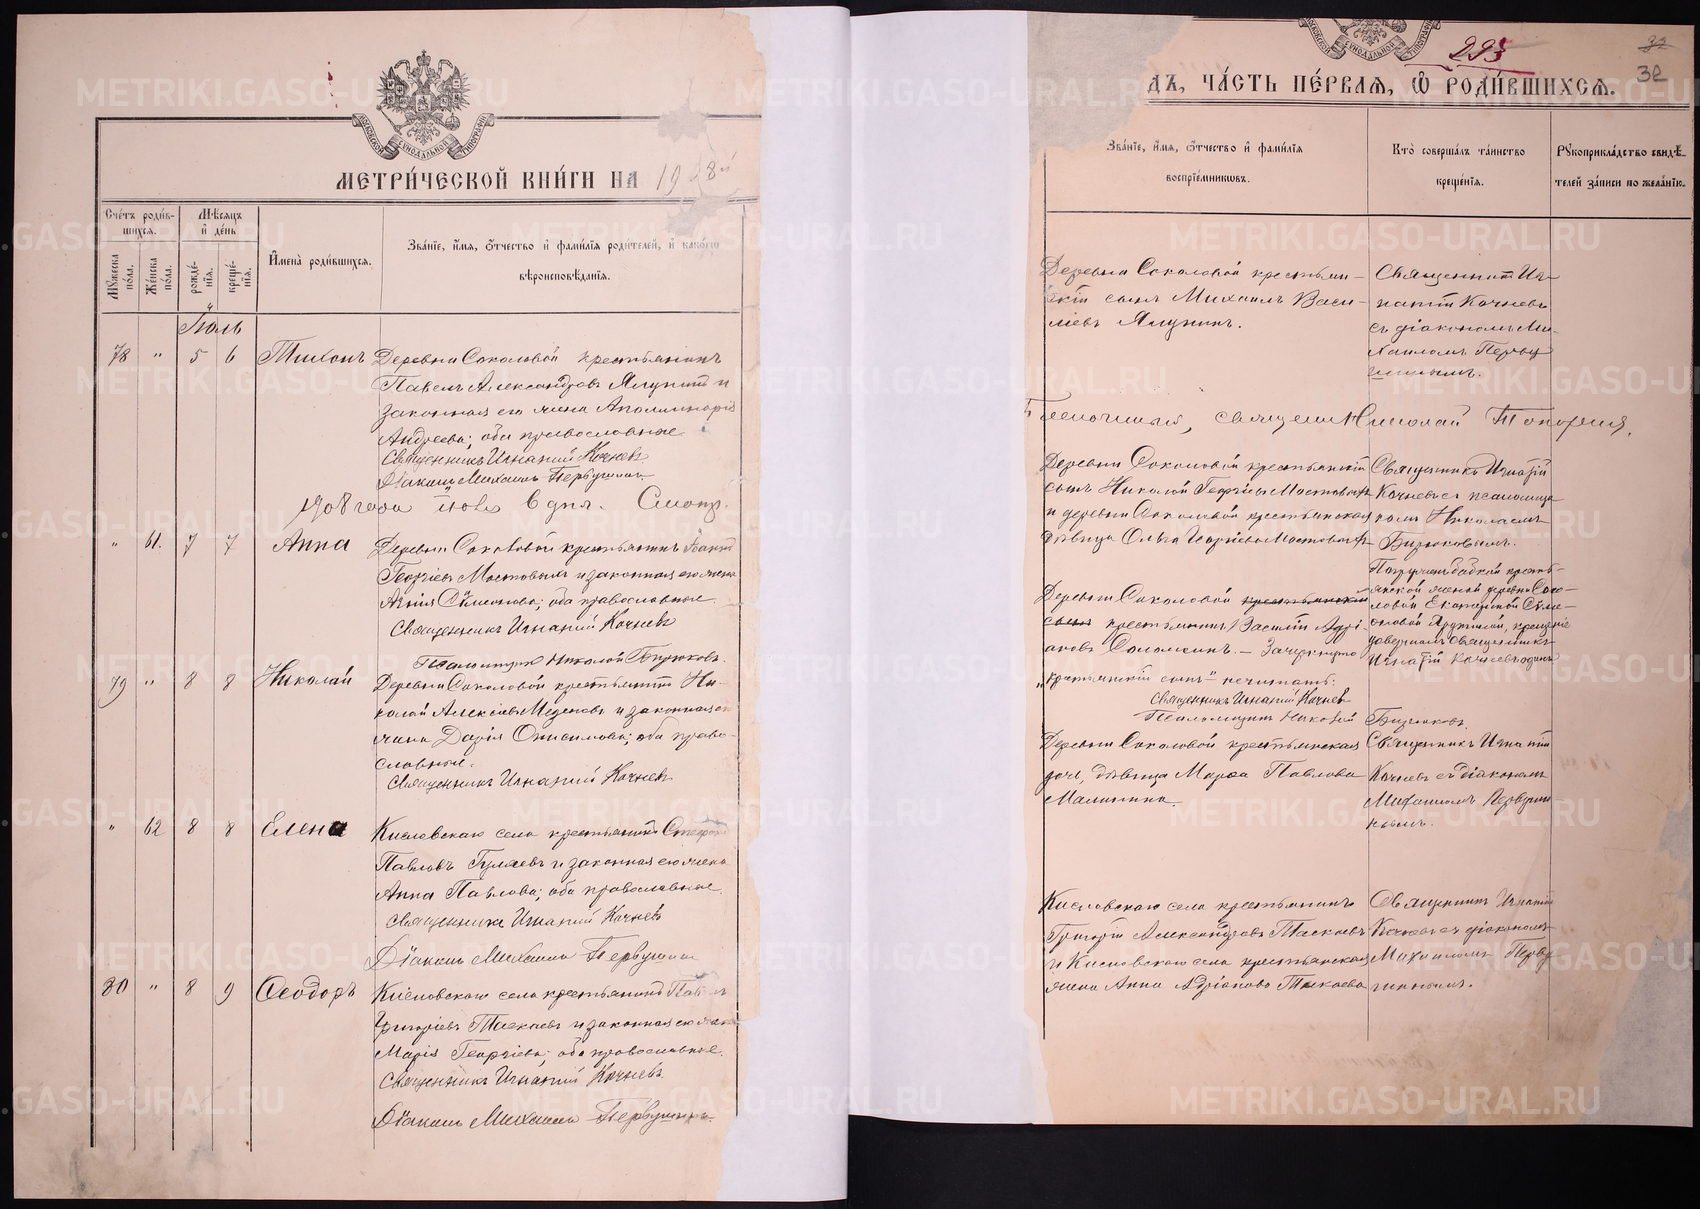 МЕТРИ́ЧЕСКОЙ КНИ́ГИ НА 1908й
Сче́тъ роди́в-
шихся.
Мѣ́сяцъ
и҆ де́нь
Мꙋ́жеска по́ла.
Же́нска по́ла.
рожде́-
нїѧ.
креще́-
нїѧ.
И҆мена̀ роди́вшихсѧ.
Зва́нїе, и҆́мѧ, ѻ҆́тчество и҆ фами́лїѧ роди́телей, и҆ како́гѡ
вѣроисповѣ́данїѧ.
Іюль
78 " 5 6 Тихонъ Деревни Соколовой крестьянинъ
Павелъ Александровъ Ялунинъ и
законная его жена Аполлинарія
Андреева; оба православные
Священникъ Игнатій Кочневъ
Діаконъ Михаилъ Первушинъ
1908 года іюля 6 дня.
" 61. 7 7 Анна Деревни Соколовой крестьянинъ
Георгіевъ Мостовыхъ и законная его жена
Симеонова; оба православные.
Священникъ Игнатій Кочневъ
Псаломщикъ Николай Бирюковъ.
79 " 8 8 Николай Деревни Соколовой крестьянинъ Ни-
колай Алексіевъ и законная его
жена Дарія Онисимова; оба право-
славные.
Священникъ Игнатій Кочневъ
" 62 8 8 Елена Кисловскаго села крестьянинъ Стефанъ
Павловъ Гуляевъ и законная его жена
Анна Павлова; оба православные.
Священникъ Игнатій Кочневъ
Діаконъ Михаилъ Первушинъ
80 " 8 9 Ѳеодоръ Кисловскаго села крестьянинъ Павелъ
Григоріевъ Таскаевъ и законная его жена
Марія Георгіева; оба православные.
Священникъ Игнатій Кочневъ.
Діаконъ Михаилъ Первушинъ.
293
32
32
ДЪ, ЧА́СТЬ ПЕ́РВАѦ, Ѽ РОДИ́ВШИХСѦ.
Зва́нїе, и҆́мѧ, ѻ҆́тчество и҆ фами́лїѧ
воспрїе́мникѡвъ.
Кто̀ соверша́лъ та́инство
креще́нїѧ.
Рꙋкоприкла́дство свидѣ́-
телей за́писи по жела́нїю.
Деревни Соколовой крестьян-
скій сынъ Михаилъ Васи-
ліевъ Ялунинъ.
Священникъ Иг-
натій Кочневъ
съ діакономъ Ми-
хаиломъ Перву-
шинымъ.
Благочинный, священ. Николай Топорковъ.
Деревни Соколовой крестьянскій
сынъ Николай Георгіевъ Мостовыхъ
и деревни Соколовой крестьянская
дѣвица Ольга Мостовыхъ
Священникъ Игнатій
Кочневъ съ псаломщи-
комъ Николаемъ
Бирюковымъ.
Деревни Соколовой крестьянскій
сынъ крестьянинъ Василій Адрі-
ановъ Соломеинъ. — Зачеркнуто
„крестьянскій сынъ" не читать:
Священникъ Игнатій Кочневъ
Псаломщикъ Николай Бирюковъ.
Погруженъ бабкой кресть-
янской женой деревни Соко-
ловой Екатериной Симе-
оновой, крещеніе
довершилъ Священникъ
Игнатій Кочневъ одинъ
Деревни Соколовой крестьянская
дочь, дѣвица Марѳа Павлова
Малинина.
Священникъ Игнатій
Кочневъ съ діакономъ
Михаиломъ Первуши-
нымъ.
Кисловскаго села крестьянинъ
Григорій Александровъ Таскаевъ
и Кисловскаго села крестьянская
жена Анна Адріанова Таскаева
Священникъ Игнатій
Кочневъ съ діакономъ
Михаиломъ Перву-
шинымъ.
METRIKI.GASO-URAL.RU